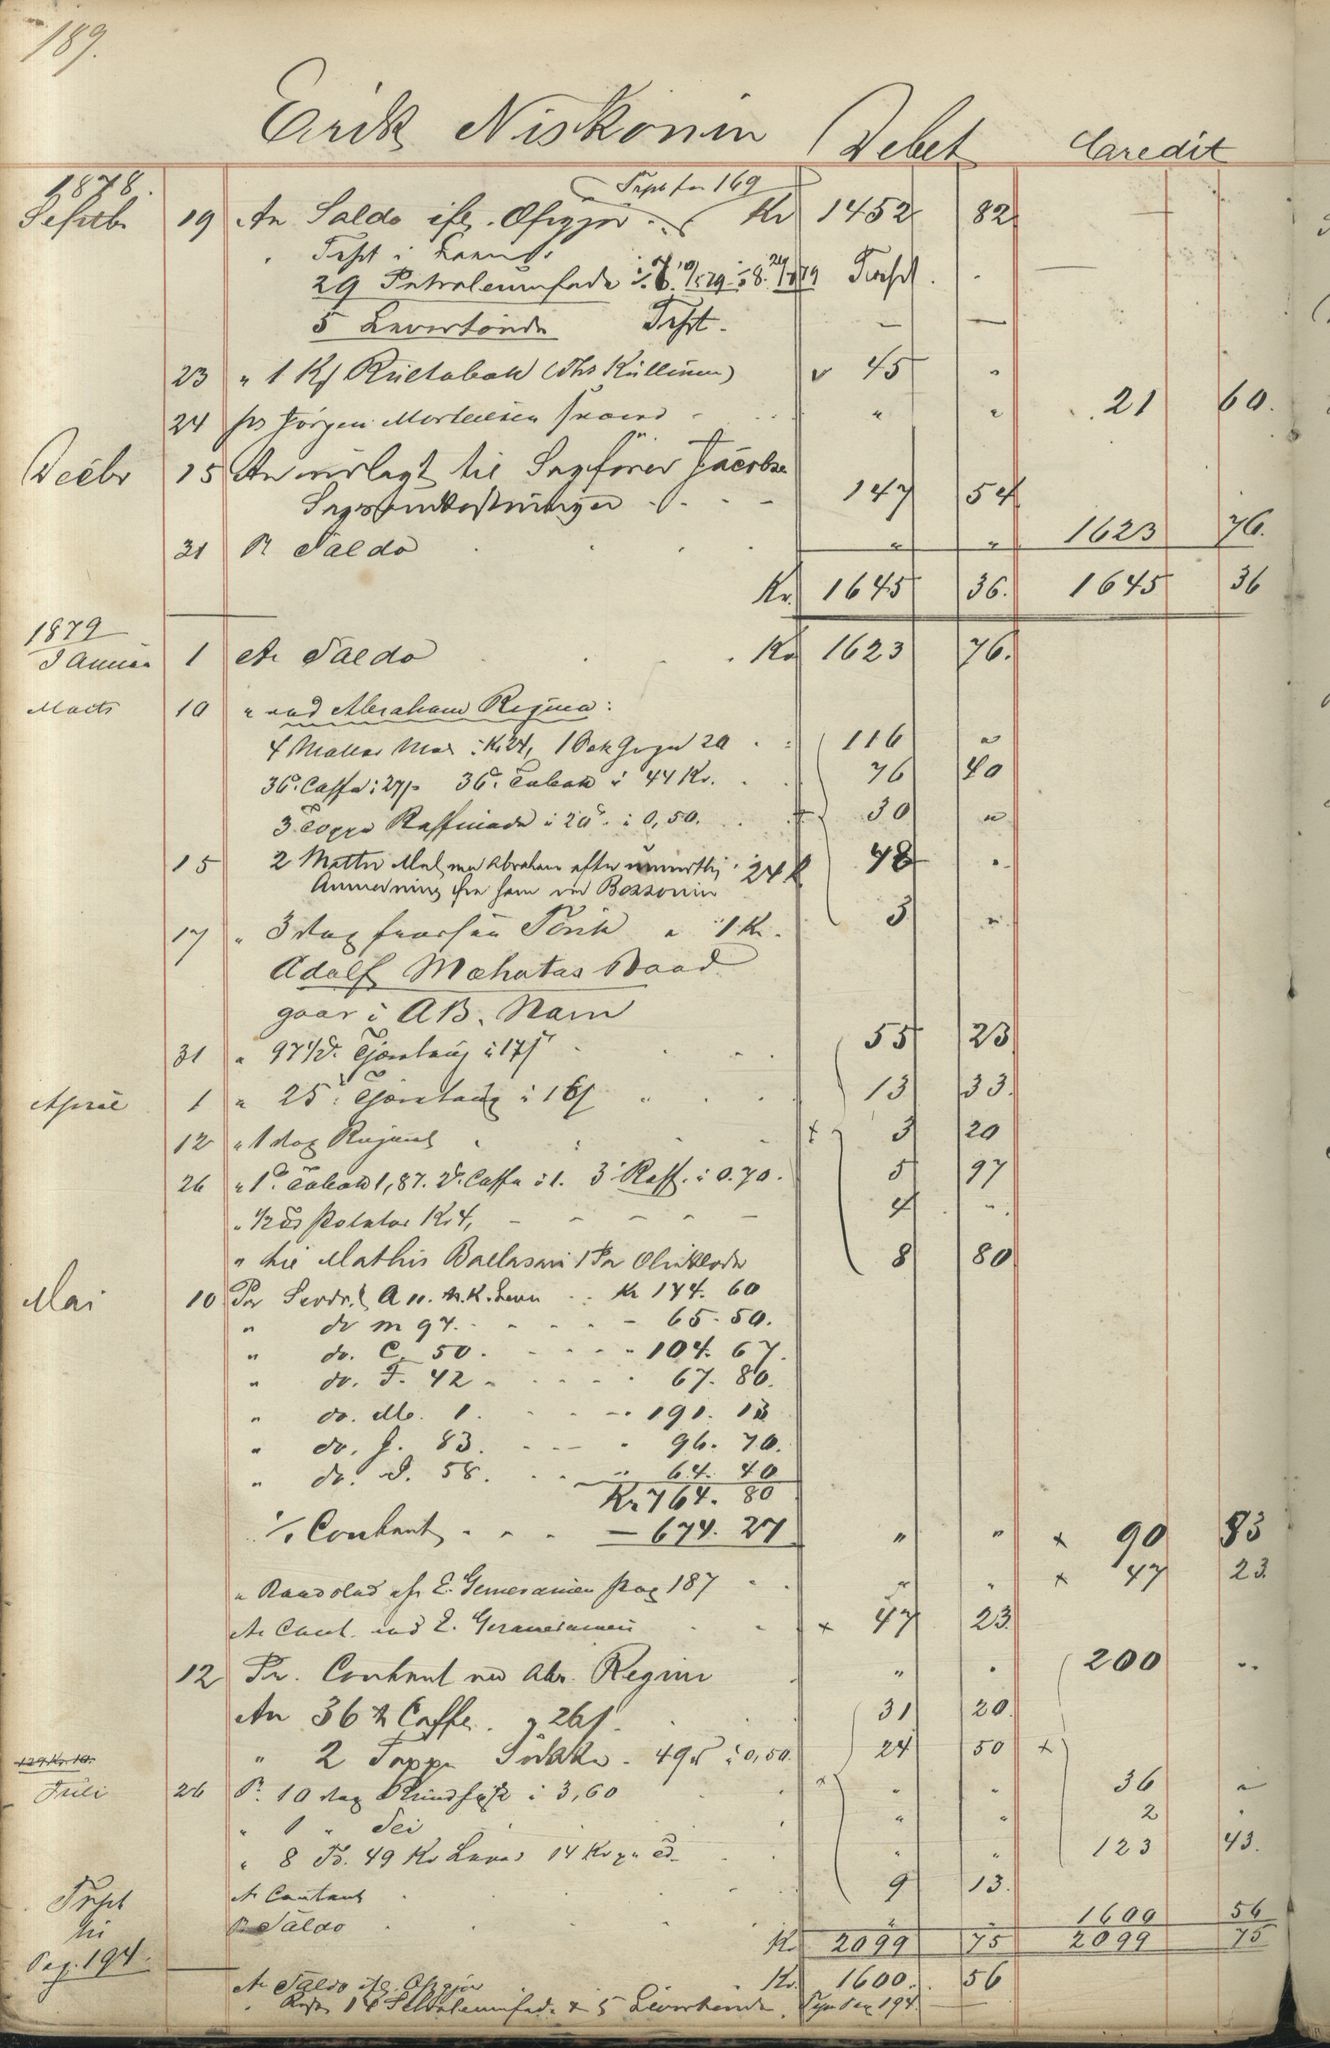 189.
Erik Niskonin Debet Credit
1878. Trpt fra 169
Septbr 19 An Saldo ifl. Opgjør Kr 1452 82
" Trpt i Lavn:
29 Petroleumfade Trspt.
5 Levertønder Trspt. — —
23 " 1 Kg Rultobak (Ths Küllinen) v 45 "
24 Jørgen Mortensen " " 21 60.
Decbr 15 An udlagt til Sagfører Jacobse
Sagsomkostninger 147 54
31 Pr Saldo " " 1623 76.
Kr. 1645 36. 1645 36
1879
Januar 1 An Saldo Kr 1623 76.
Marts 10 " ved Abraham Regina:
4 Matter Mel à Kr 24, 1 Sæk Gryn 20 116 "
36 Caffe à 27 36 Tobak à 44 Kr. 76 40
3 Toppe Raffinade à 20 à 0,50. + 30 "
15 2 Matter Mel Abraham efter
Anmodning fra ham ved Bossonin 24 K 48 "
17 " 3 Vog Törik " 1 Kr. 3 "
Adolf Mahatas Baad
gaar i A B. Navn
31 " 97½ Tjæretaug à 17 55 23
April 1 " 25 Tjæretaug à 16 13 33.
12 " 1 Vog Rugmel + 3 20
26 " 1 Tobak 1,87. 2 Caffe à 1. 3 Raff. à 0.70. 5 97
" ½ Potetor Kr 4, 4 "
" til Mathis Ballasari 1 Par Olieklæder 8 80
Mai 10 Pr A 11. Kr 174. 60
" do m 97. 65. 50.
" do. C. 50. 104. 67.
" do. F. 42 67. 80.
" do. M. 1. 191. 13
" do. J. 83. 96. 70.
" do. I. 58. 64. 40
Kr 764. 80
% Contant — 674. 27 " " x 90 53
" E. pag 187 " " x 47 23.
An Cont. ved E. x 47 23.
12 Pr. Contant ved Abr. Regina " " 200 "
An 36 Caffe. 26 31 20.
" 2 Toppe Sukker. 49 à 0,50. 24 50 x
129 Kr. 10.
Juli 26 Pr. 10 Vog Rundfisk à 3,60 x " " 36 "
" 1 " Sei " " 2 "
" 8 To. 49 Ko Lever 14 Kr " " 123 43.
An Contant 9 13.
Trspt
til
Pag. 194.
Pr Saldo " " 1600 56
Kr 2099 75 2099 75
An Saldo ifl. Opgjør Kr. 1600. 56
" Rest 14 Petroleumfade & 5 Levertønder. Pag 194. —